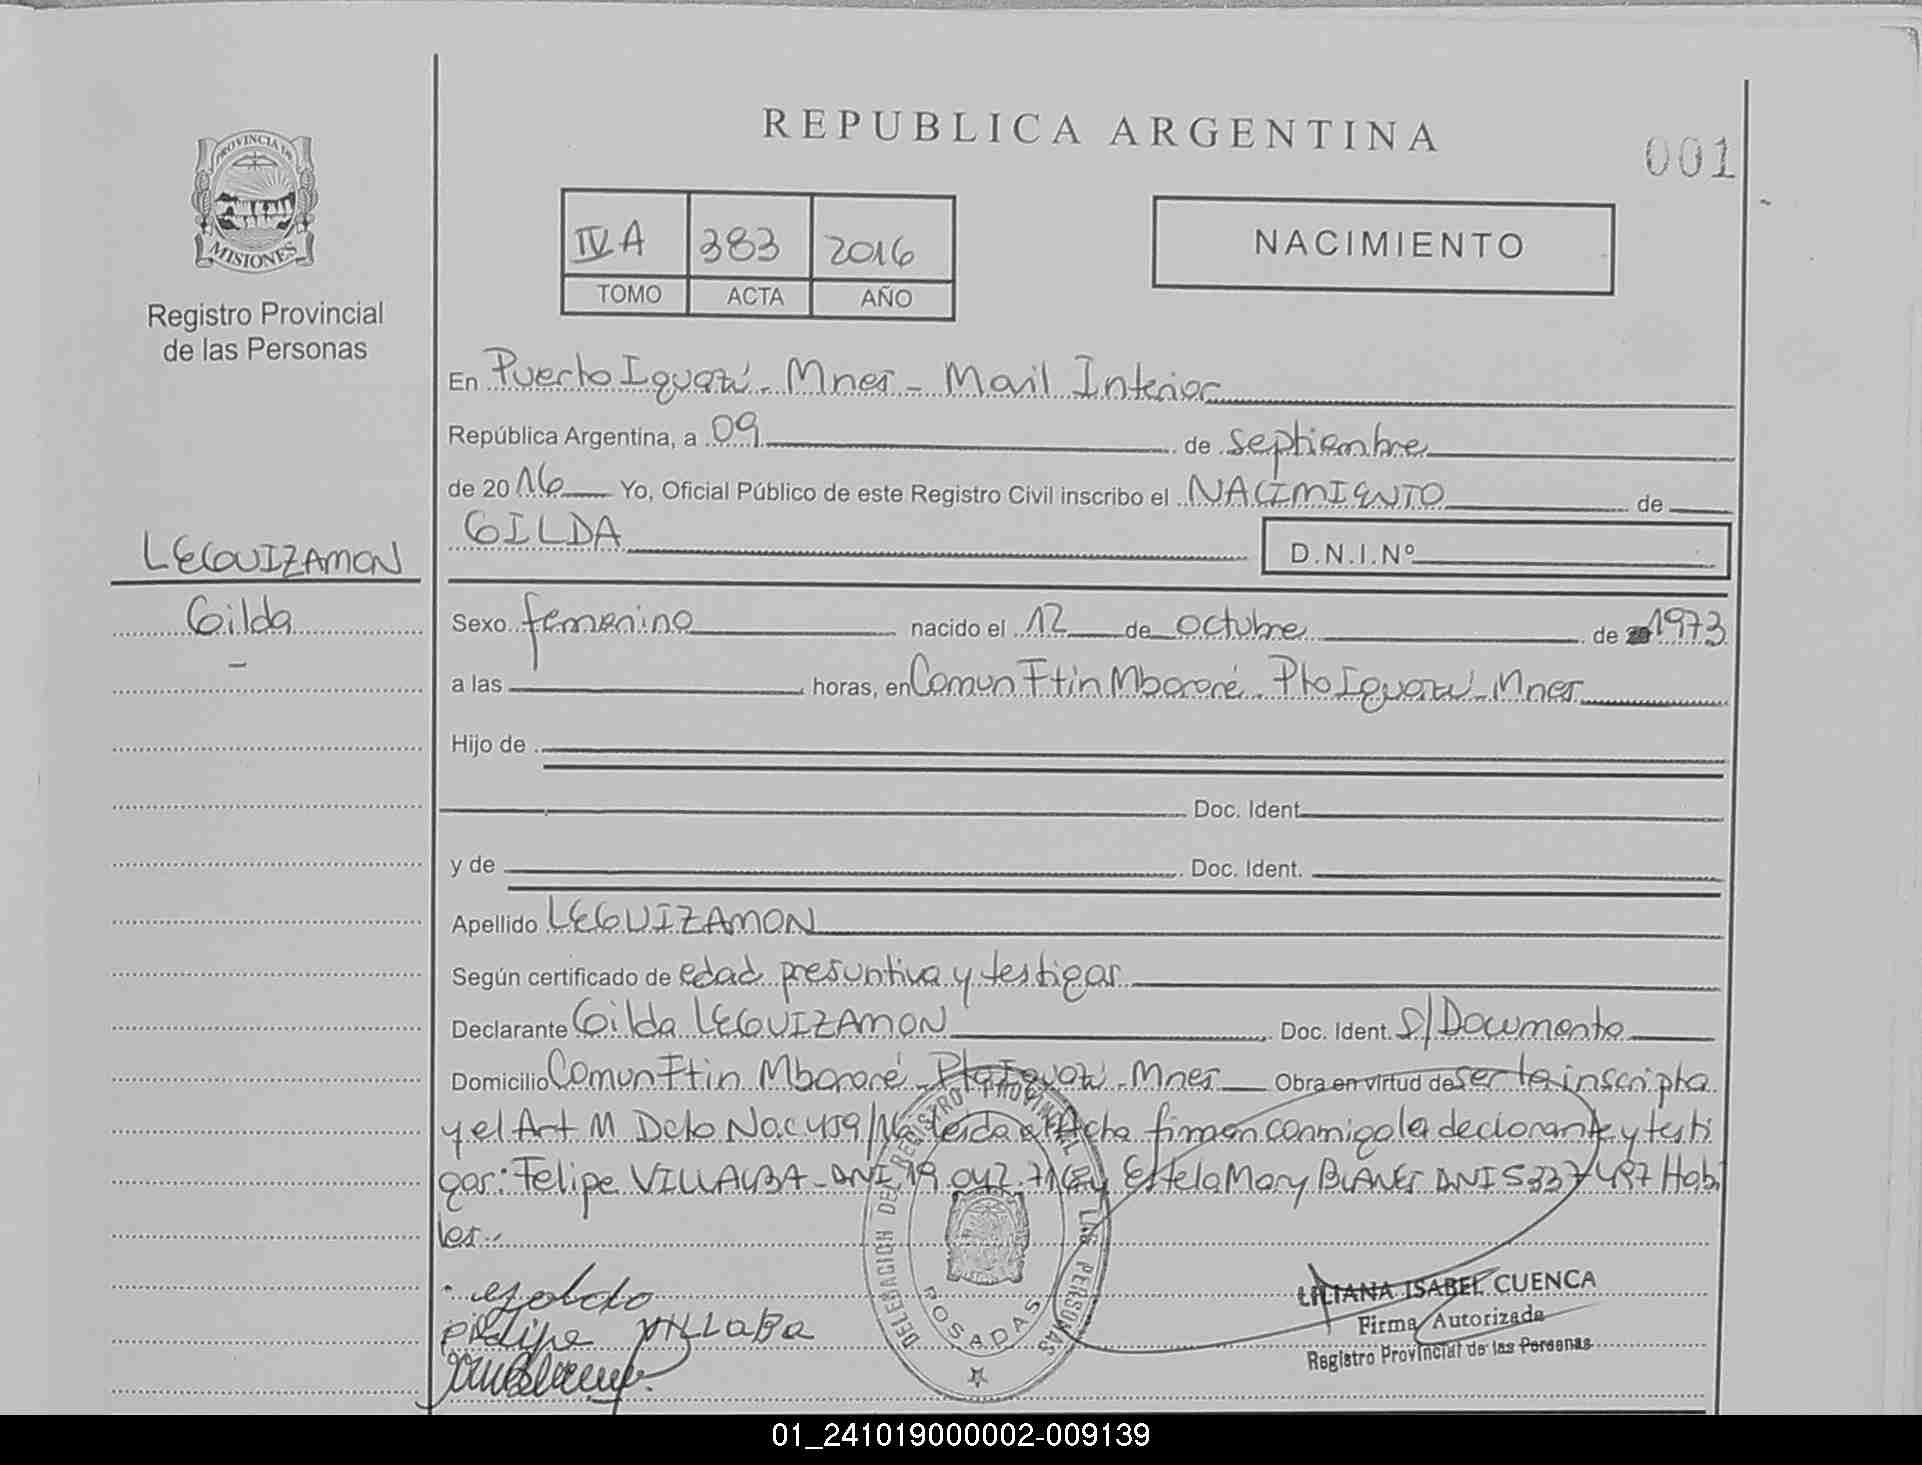 REPUBLICA ARGENTINA
001
PROVINCIA DE
MISIONES
Registro Provincial
de las Personas
IV A 383 2016
TOMO ACTA AÑO
NACIMIENTO
En Puerto Iguazú - Mnes - Mail Interior
República Argentina, a 09 de septiembre
de 2016 Yo, Oficial Público de este Registro Civil inscribo el NACIMIENTO de
GILDA D.N.I.Nº
LEGUIZAMON
Gilda
Sexo femenino nacido el 12 de octubre de 1973
a las horas, en Comun Ftin Mbororé Pto Iguazú - Mnes
Hijo de
Doc. Ident.
y de Doc. Ident.
Apellido LEGUIZAMON
Según certificado de edad presuntiva y testigos
Declarante Gilda LEGUIZAMON Doc. Ident. S/Documento
Domicilio Comun Ftin Mbororé - Pto Iguazú - Mnes Obra en virtud de ser la inscripta
y el Art 11 Dcto Nac 459/16 leída el Acta firman conmigo la declarante y testi
gos: Felipe VILLALBA - DNI 19.042.716 y Estela Mary BLANES DNI 5337497 Hábi
les.-
Felipe VILLaBa
DELEGACION DEL REGISTRO PROVINCIAL DE LAS PERSONAS
POSADAS
LILIANA ISABEL CUENCA
Firma Autorizada
Registro Provincial de las Personas
01_241019000002-009139